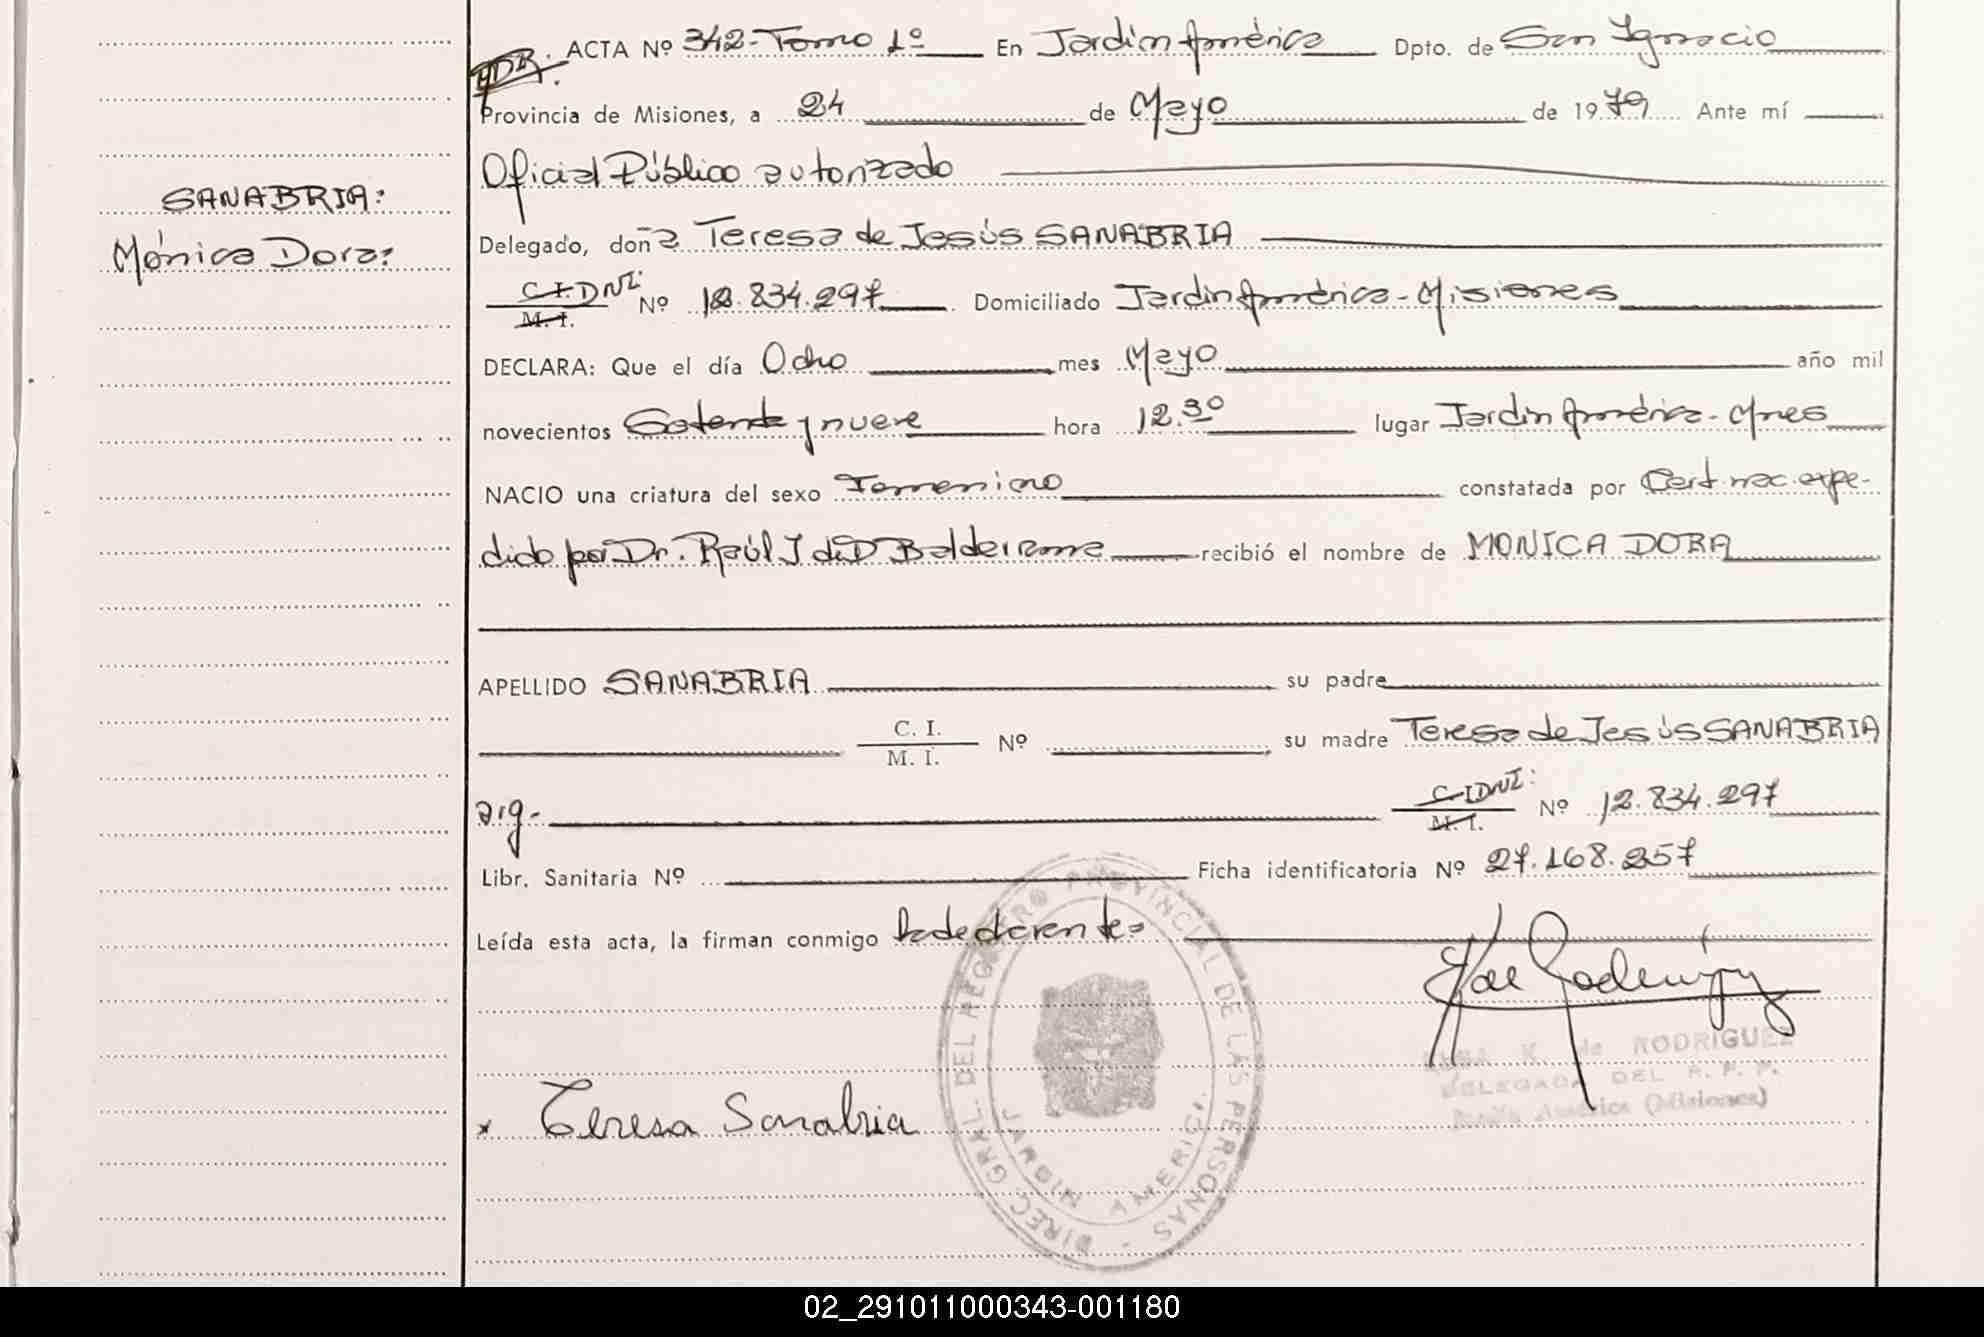 ACTA Nº 342-Tomo 1º En Jardín América Dpto. de San Ignacio
Provincia de Misiones, a 24 de Mayo de 1979 Ante mí
Oficial Público autorizado
SANABRIA:
Delegado, doña Teresa de Jesús SANABRIA
Mónica Dora:
C.I. DNI: M.I. Nº 12.834.297 Domiciliado Jardín América-Misiones
DECLARA: Que el día Ocho mes Mayo año mil
novecientos Setenta y nueve hora 12.30 lugar Jardín América-Mnes
NACIO una criatura del sexo Femenino constatada por Cert. nac. expe-
dido por Dr. Raúl J. Balderrama recibió el nombre de MONICA DORA
APELLIDO SANABRIA su padre
C. I. M. I. Nº su madre Teresa de Jesús SANABRIA
arg- C.I. DNI: M.I. Nº 12.834.297
Libr. Sanitaria Nº Ficha identificatoria Nº 27.168.257
Leída esta acta, la firman conmigo la declarante-
DIREC. GRAL. DEL REGISTRO PROVINCIAL DE LAS PERSONAS - JARDIN AMERICA
K. de RODRIGUEZ
DELEGADA DEL R. P. P.
Jardín América (Misiones)
x Teresa Sanabria
02_291011000343-001180